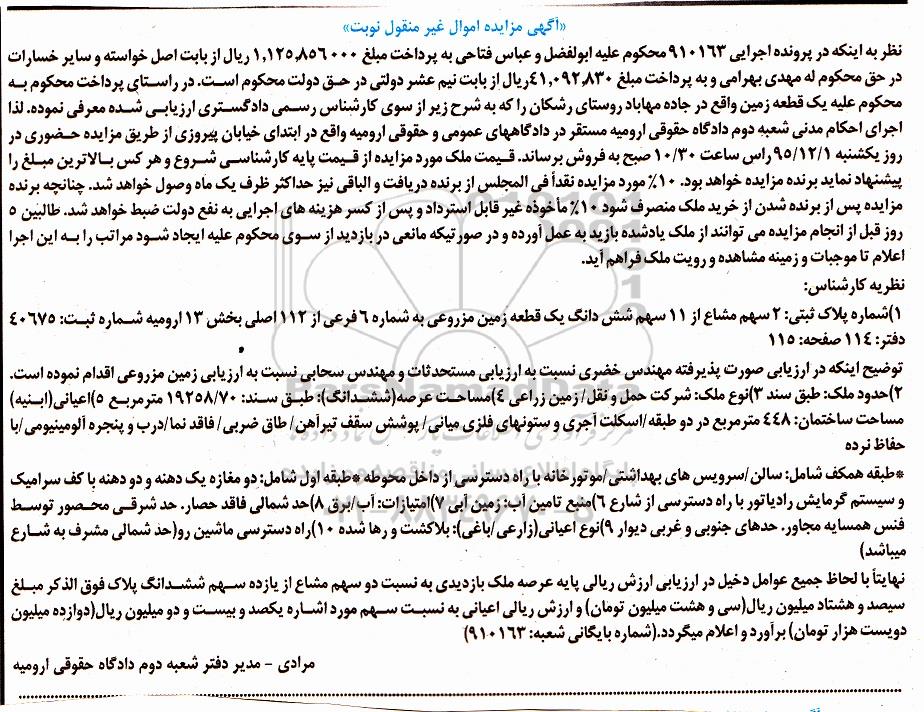 «آگهی مزایده اموال غیر منقول نوبت»
نظر به اینکه در پرونده اجرایی ۹۱۰۱۶۳ محکوم علیه ابوالفضل و عباس فتاحی به پرداخت مبلغ ۱,۱۲۵,۸۵۶۰۰۰ ریال از بابت اصل خواسته و سایر خسارات
در حق محکوم له مهدی بهرامی و به پرداخت مبلغ ۴۱,۰۹۲,۸۳۰ریال از بابت نیم عشر دولتی در حق دولت محکوم است. در راستای پرداخت محکوم به
محکوم علیه یک قطعه زمین واقع در جاده مهاباد روستای رشکان را که به شرح زیر از سوی کارشناس رسمی دادگستری ارزیابی شده معرفی نموده. لذا
اجرای احکام مدنی شعبه دوم دادگاه حقوقی ارومیه مستقر در دادگاههای عمومی و حقوقی ارومیه واقع در ابتدای خیابان پیروزی از طریق مزایده حضوری در
روز یکشنبه ۹۵/۱۲/۱ راس ساعت ۱۰/۳۰ صبح به فروش برساند. قیمت ملک مورد مزایده از قیمت پایه کارشناسی شروع و هر کس بالاترین مبلغ را
پیشنهاد نماید برنده مزایده خواهد بود. ۱۰٪ مورد مزایده نقداً فی المجلس از برنده دریافت و الباقی نیز حداکثر ظرف یک ماه وصول خواهد شد. چنانچه برنده
مزایده پس از برنده شدن از خرید ملک منصرف شود ۱۰٪ ماخوذه غیر قابل استرداد و پس از کسر هزینه های اجرایی به نفع دولت ضبط خواهد شد. طالبین ۵
روز قبل از انجام مزایده می توانند از ملک یادشده بازید به عمل آورده و در صورتیکه مانعی در بازدید از سوی محکوم علیه ایجاد شود مراتب را به این اجرا
اعلام تا موجبات و زمینه مشاهده و رویت ملک فراهم آید.
نظریه کارشناس:
۱)شماره پلاک ثبتی: ۲ سهم مشاع از ۱۱ سهم شش دانگ یک قطعه زمین مزروعی به شماره ۶ فرعی از ۱۱۲ اصلی بخش ۱۳ ارومیه شماره ثبت: ۴۰۶۷۵
دفتر: ۱۱۴ صفحه: ۱۱۵
توضیح اینکه در ارزیابی صورت پذیرفته مهندس خضری نسبت به ارزیابی مستحدثات و مهندس سحابی نسبت به ارزیابی زمین مزروعی اقدام نموده است.
۲)حدود ملک: طبق سند ۳)نوع ملک: شرکت حمل و نقل/ زمین زراعی ۴)مساحت عرصه(ششدانگ): طبق سند: ۱۹۲۵۸/۷۰ مترمربع ۵)اعیانی(ابنیه)
مساحت ساختمان: ۴۴۸ مترمربع در دو طبقه/اسکلت آجری و ستونهای فلزی میانی/ پوشش سقف تیرآهن/ طاق ضربی/ فاقد نما/درب و پنجره آلومینیومی/با
حفاظ نرده
*طبقه همکف شامل: سالن/سرویس های بهداشتی/موتورخانه با راه دسترسی از داخل محوطه *طبقه اول شامل: دو مغازه یک دهنه و دو دهنه با کف سرامیک
و سیستم گرمایش رادیاتور با راه دسترسی از شارع ۶)منبع تامین آب: زمین آبی ۷)امتیازات: آب/برق ۸)حد شمالی فاقد حصار. حد شرقی محصور توسط
فنس همسایه مجاور. حدهای جنوبی و غربی دیوار ۹)نوع اعیانی(زارعی/باغی): بلاکشت و رها شده ۱۰)راه دسترسی ماشین رو(حد شمالی مشرف به شارع
میباشد)
نهایتاً با لحاظ جمیع عوامل دخیل در ارزیابی ارزش ریالی پایه عرصه ملک بازدیدی به نسبت دو سهم مشاع از یازده سهم ششدانگ پلاک فوق الذکر مبلغ
سیصد و هشتاد میلیون ریال(سی و هشت میلیون تومان) و ارزش ریالی اعیانی به نسبت سهم مورد اشاره یکصد و بیست و دو میلیون ریال(دوازده میلیون
دویست هزار تومان) برآورد و اعلام میگردد.(شماره بایگانی شعبه: ۹۱۰۱۶۳)
مرادی - مدیر دفتر شعبه دوم دادگاه حقوقی ارومیه